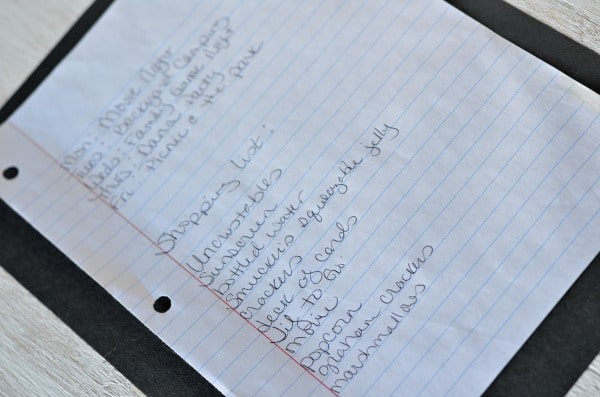 Mon: Movie Night
Tues: Backyard Camping
Weds: Family Game Night
Thurs: Dance Party
Fri: Picnic @ the park
Shopping list:
Uncrustables
Sunscreen
bottled water
Smucker's squeezable jelly
crackers
deck of cards
Jif to Go
movie
popcorn
graham crackers
marshmallows